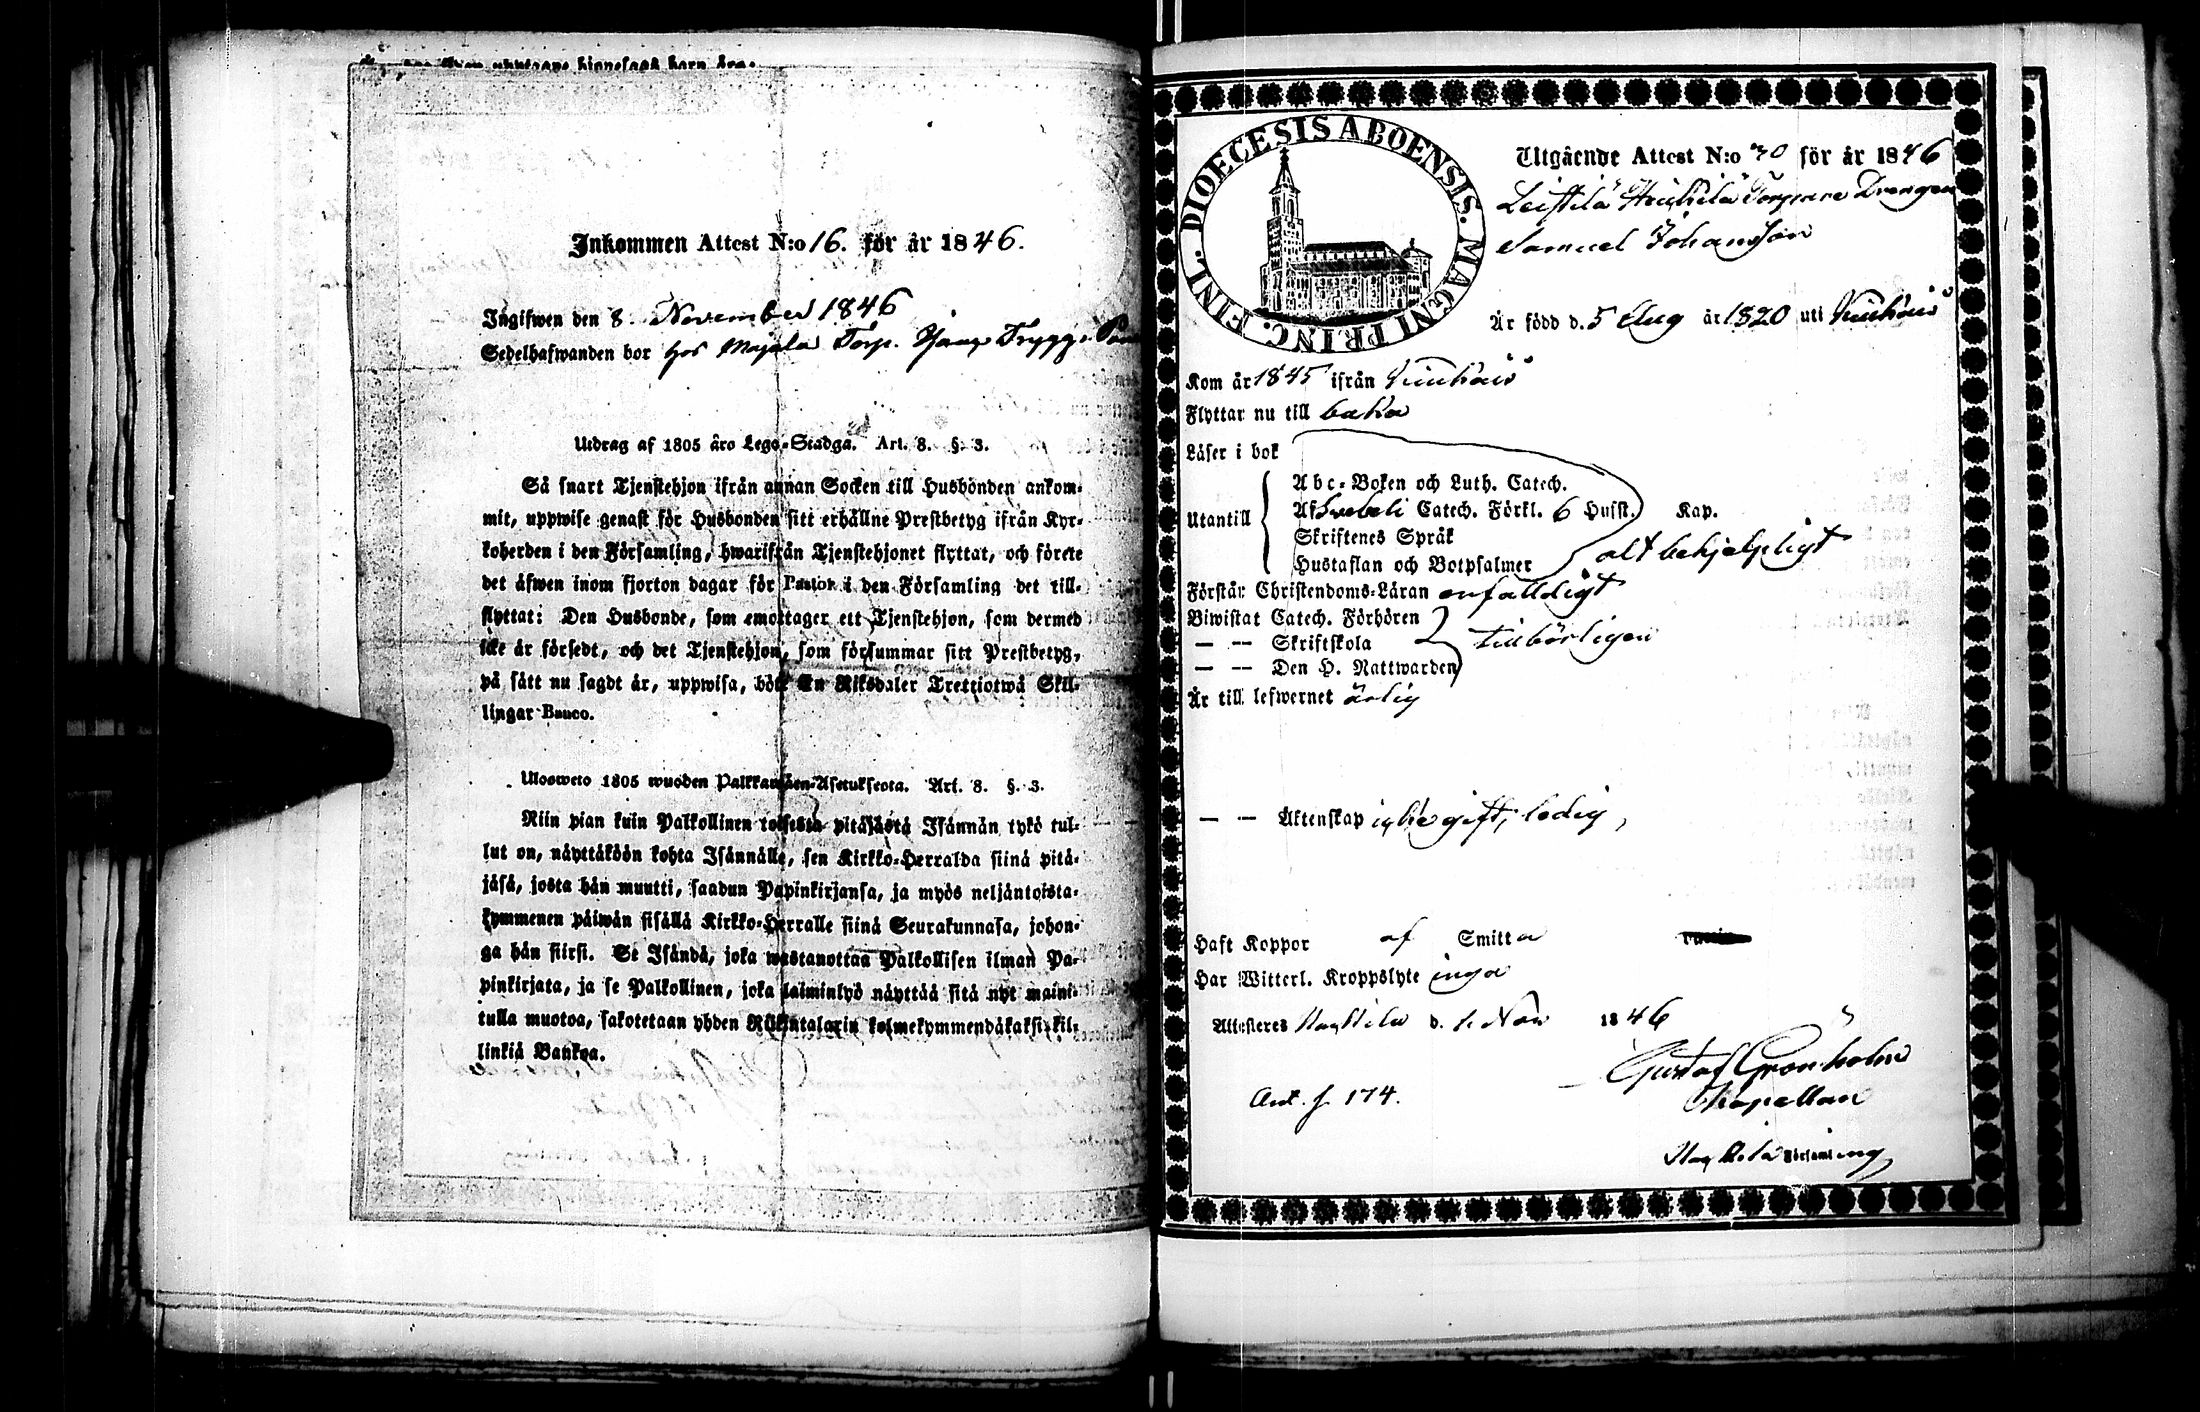 Inkommen Attest N:o 16. för år 1846.
Ingifwen den 8 November 1846
Sedelhafwanden bor hos Majala Torp.
Utdrag af 1805 års Lego-Stadga. Art. 8. §. 3.
Så snart Tjenstehjon ifrån annan Socken till Husbonden ankom-
mit, uppwise genast för Husbonden sitt erhållne Prestbetyg ifrån Kyr-
koherden i den Församling, hwarifrån Tjenstehjonet flyttat, och förete
det äfwen inom fjorton dagar för Pastor i den Församling det till-
flyttat: Den Husbonde, som emottager ett Tjenstehjon, som dermed
icke är försedt, och det Tjenstehjon, som försummar sitt Prestbetyg,
på sätt nu sagdt är, uppwisa, böte En Riksdaler Trettiotwå Skil-
lingar Banco.
Ulosweto 1805 wuoden Palkkawäen-Asetuksesta. Art. 8. §. 3.
Niin pian kuin Palkollinen toisesta pitäjästä Isännän tykö tul-
lut on, näyttäköön kohta Isännälle, sen Kirkko-Herralda siinä pitä-
jäsä, josta hän muutti, saadun Papinkirjansa, ja myös neljäntoista-
kymmenen päiwän sisällä Kirkko-Herralle siinä Seurakunnasa, johon-
ga hän siirsi. Se Isändä, joka wastanottaa Palkollisen ilman Pa-
pinkirjata, ja se Palkollinen, joka laiminlyö näyttää sitä nyt maini-
tulla muotoa, sakotetaan yhden Riikintalarin kolmekymmendäkaksi kil-
linkiä Bankoa.
DIOECESIS ABOENSIS. MAGNI PRINC. FINL.
Utgående Attest N:o 70 för år 1846
Leistilä Heikkilä Torpare Drengen
Samuel Johansson
Är född d. 5 Aug år 1820 uti
Kom år 1845 ifrån
Flyttar nu till baka
Läser i bok
Utantill
Abc-Boken och Luth. Catech.
Af Svebeli Catech. Förkl. 6 Hufst. Kap.
Skriftenes Språk
Hustaflan och Botpsalmer alt behjelpligt
Förstår Christendoms-Läran enfalldigt
Biwistat Catech. Förhören
— — Skriftskola tillbörligen
— — Den H. Nattwarden
Är till lefwernet ärlig
— — Äktenskap icke gift, ledig,
Haft Koppor af Smitta
Har Witterl. Kroppslyte inga
Attesteres Nakkila d. 1. Nov 1846
Gustaf Grönholm
Chapellan
Ant. f 174.
Nakkila Församling